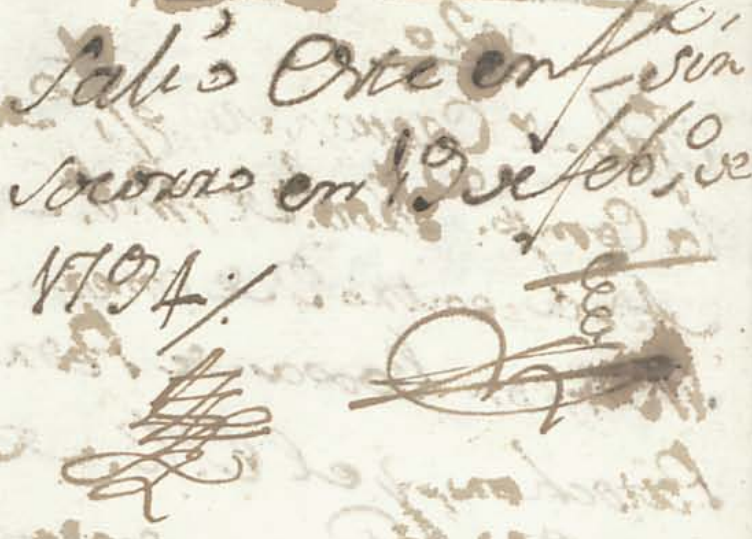 Salió Este enf.º sin
socorro en 19 de feb.º de
1794./.